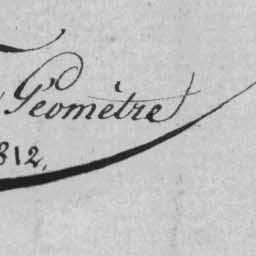 Géomètre
812.